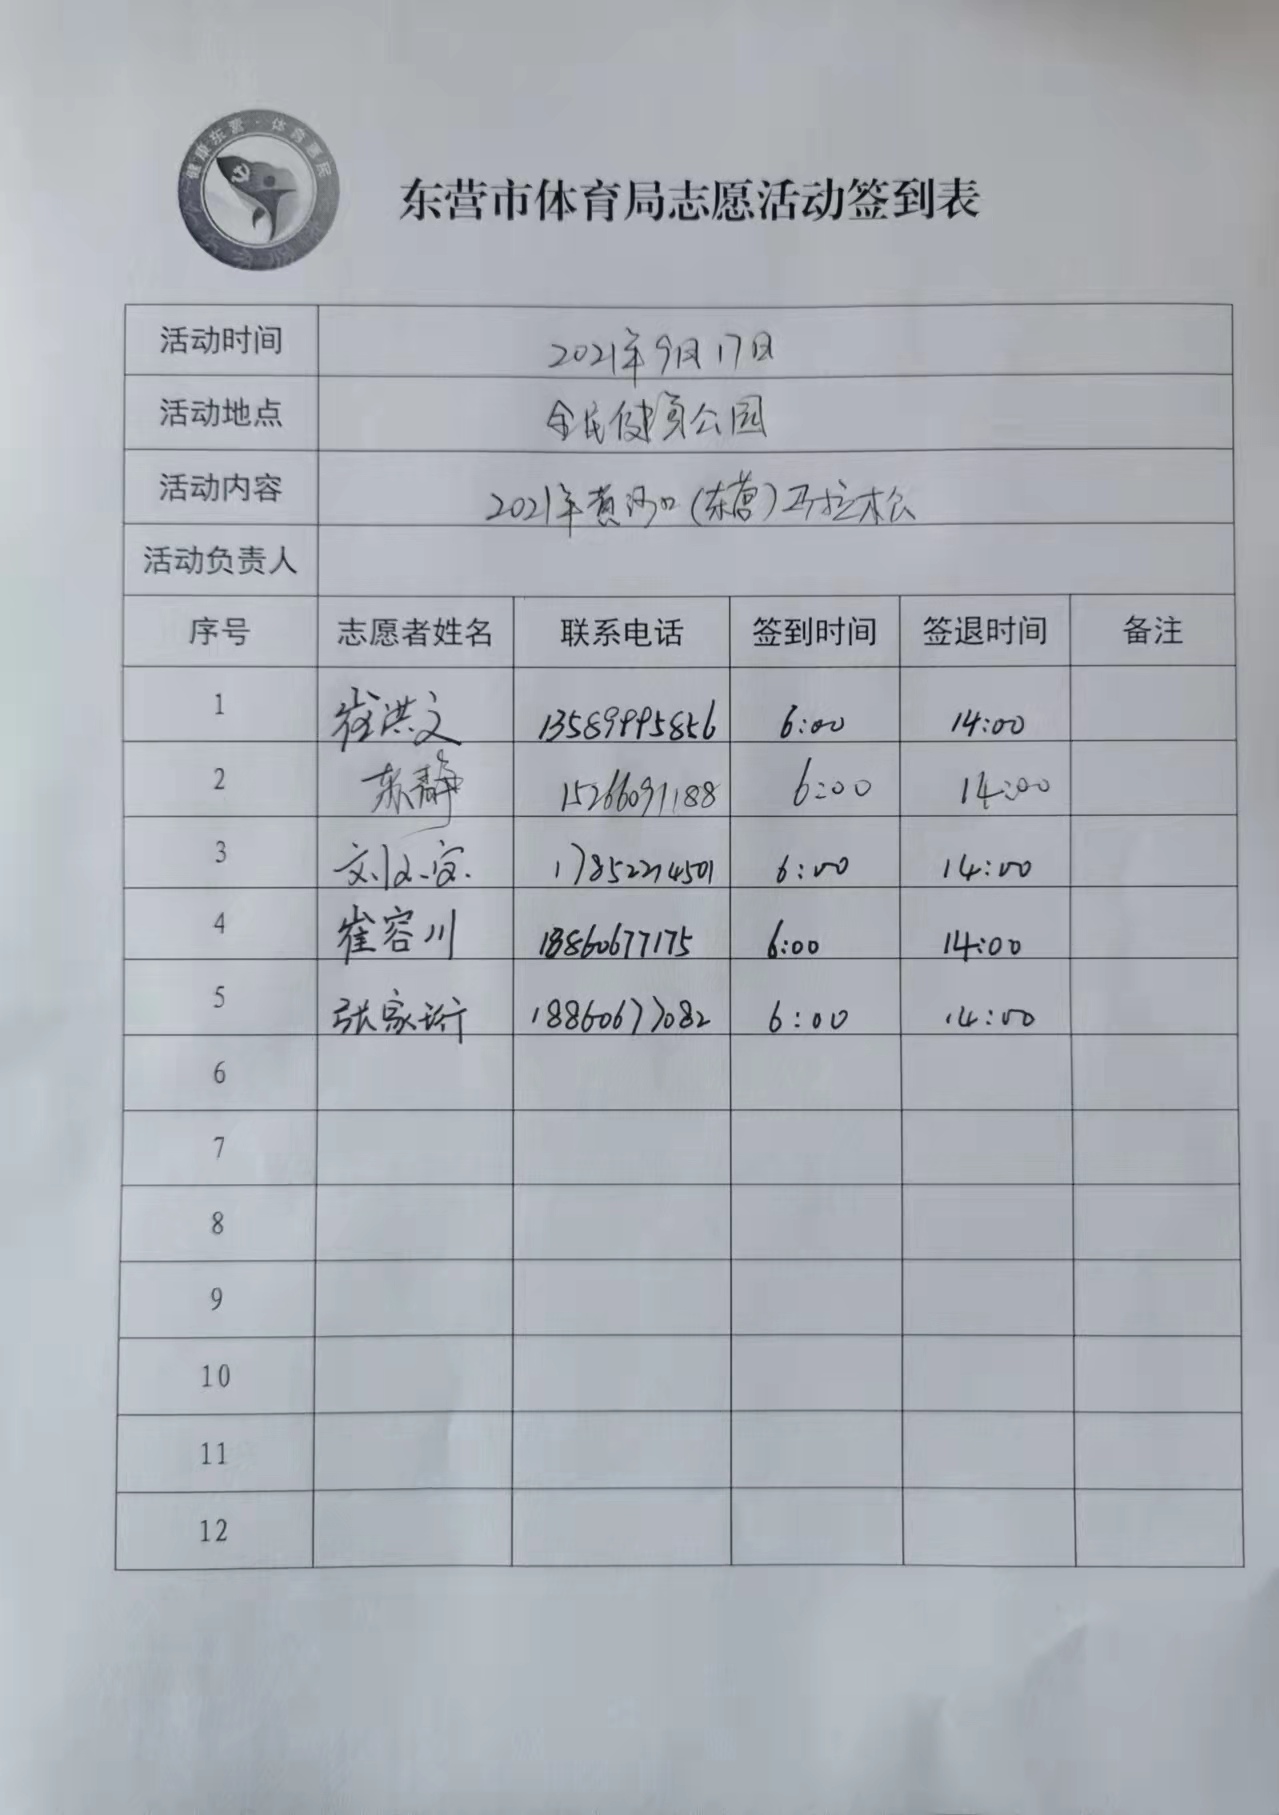 健康东营·体育惠民
东营市体育局志愿活动签到表
活动时间 2021年9月17日
活动地点 全民健身公园
活动内容 2021年黄河口(东营)马拉松
活动负责人
序号 志愿者姓名 联系电话 签到时间 签退时间 备注
1 崔洪文 13589995856 6:00 14:00
2 苏静 15266091188 6:00 14:00
3 17852274501 6:00 14:00
4 崔容川 18860677175 6:00 14:00
5 张家珩 18860677082 6:00 14:00
6
7
8
9
10
11
12